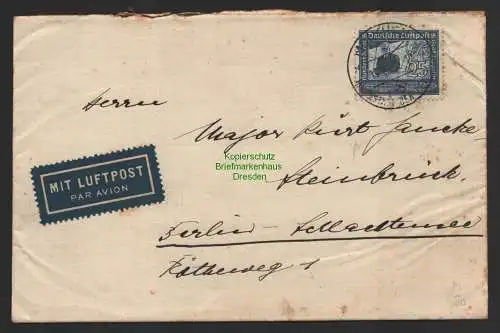 Deutsche Luftpost
25
Herrn
Major Kurt Jancke-
Steinbrück.
Berlin-Schlachtensee
Kötherweg 1
MIT LUFTPOST
PAR AVION
Kopierschutz
Briefmarkenhaus
Dresden